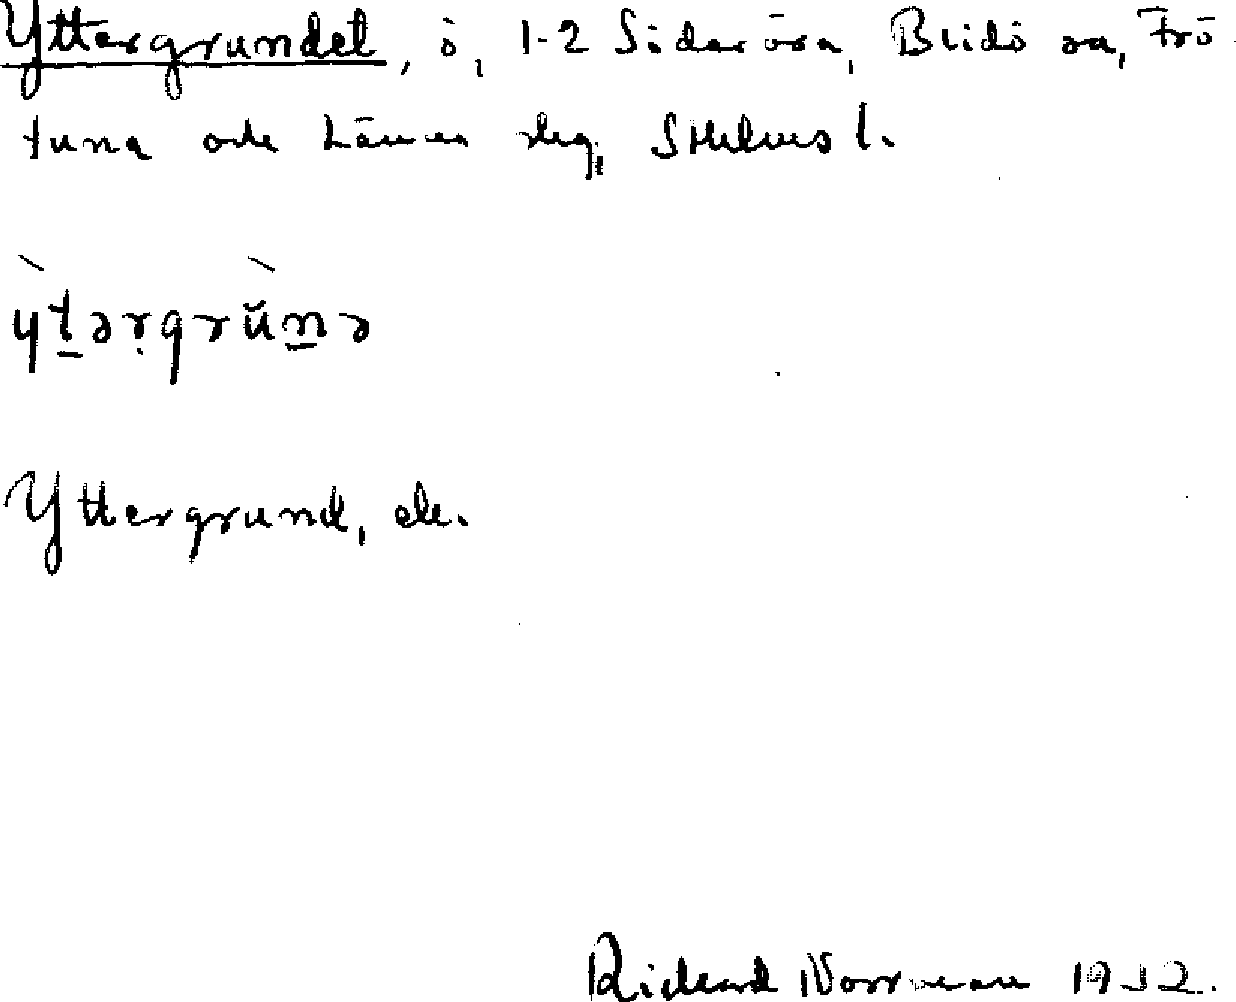 Yttergrundet, ö, 1-2 Söderöra, Blidö sn, Frö-
tuna och Länna skg, Sthlms l.
ỳt̲ərgrŭ̀n̲ə
Yttergrund, ek.
Rickard Norrman 1932.